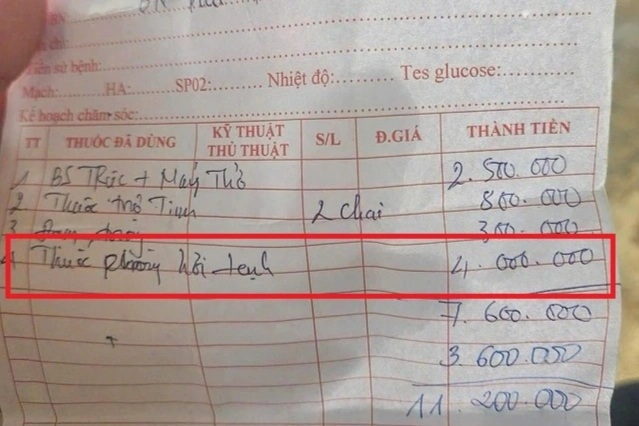 BN
Tiền sử bệnh:
Mạch: HA: SP02: Nhiệt độ: Tes glucose:
Kế hoạch chăm sóc:
TT THUỐC ĐÃ DÙNG KỸ THUẬT THỦ THUẬT S/L Đ.GIÁ THÀNH TIỀN
1 BS Trực + Máy Thở 2.500.000
2 Thuốc trợ Tim 2 chai 800.000
3 300.000
4 Thuốc phòng hôi tanh 4.000.000
7.600.000
3.600.000
11.200.000